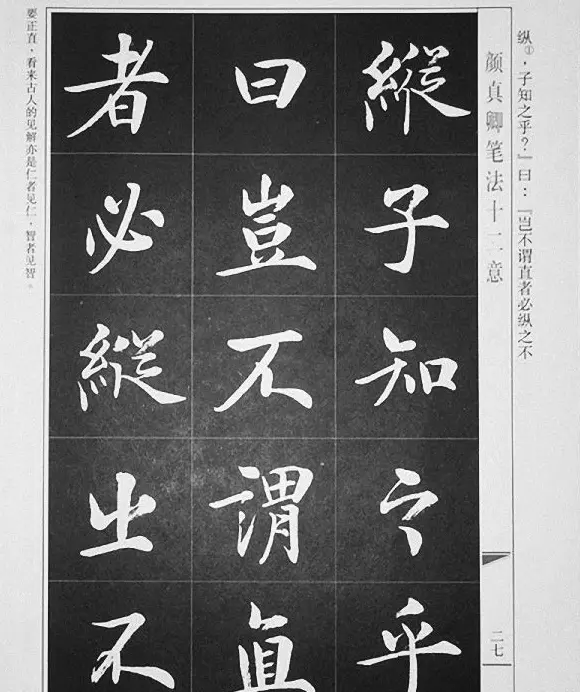 纵①，子知之乎？』曰：『岂不谓直者必纵之不
颜真卿笔法十二意
二七
縱子知之乎
曰豈不謂直
者必縱出不
要正直，看来古人的见解亦是仁者见仁，智者见智。